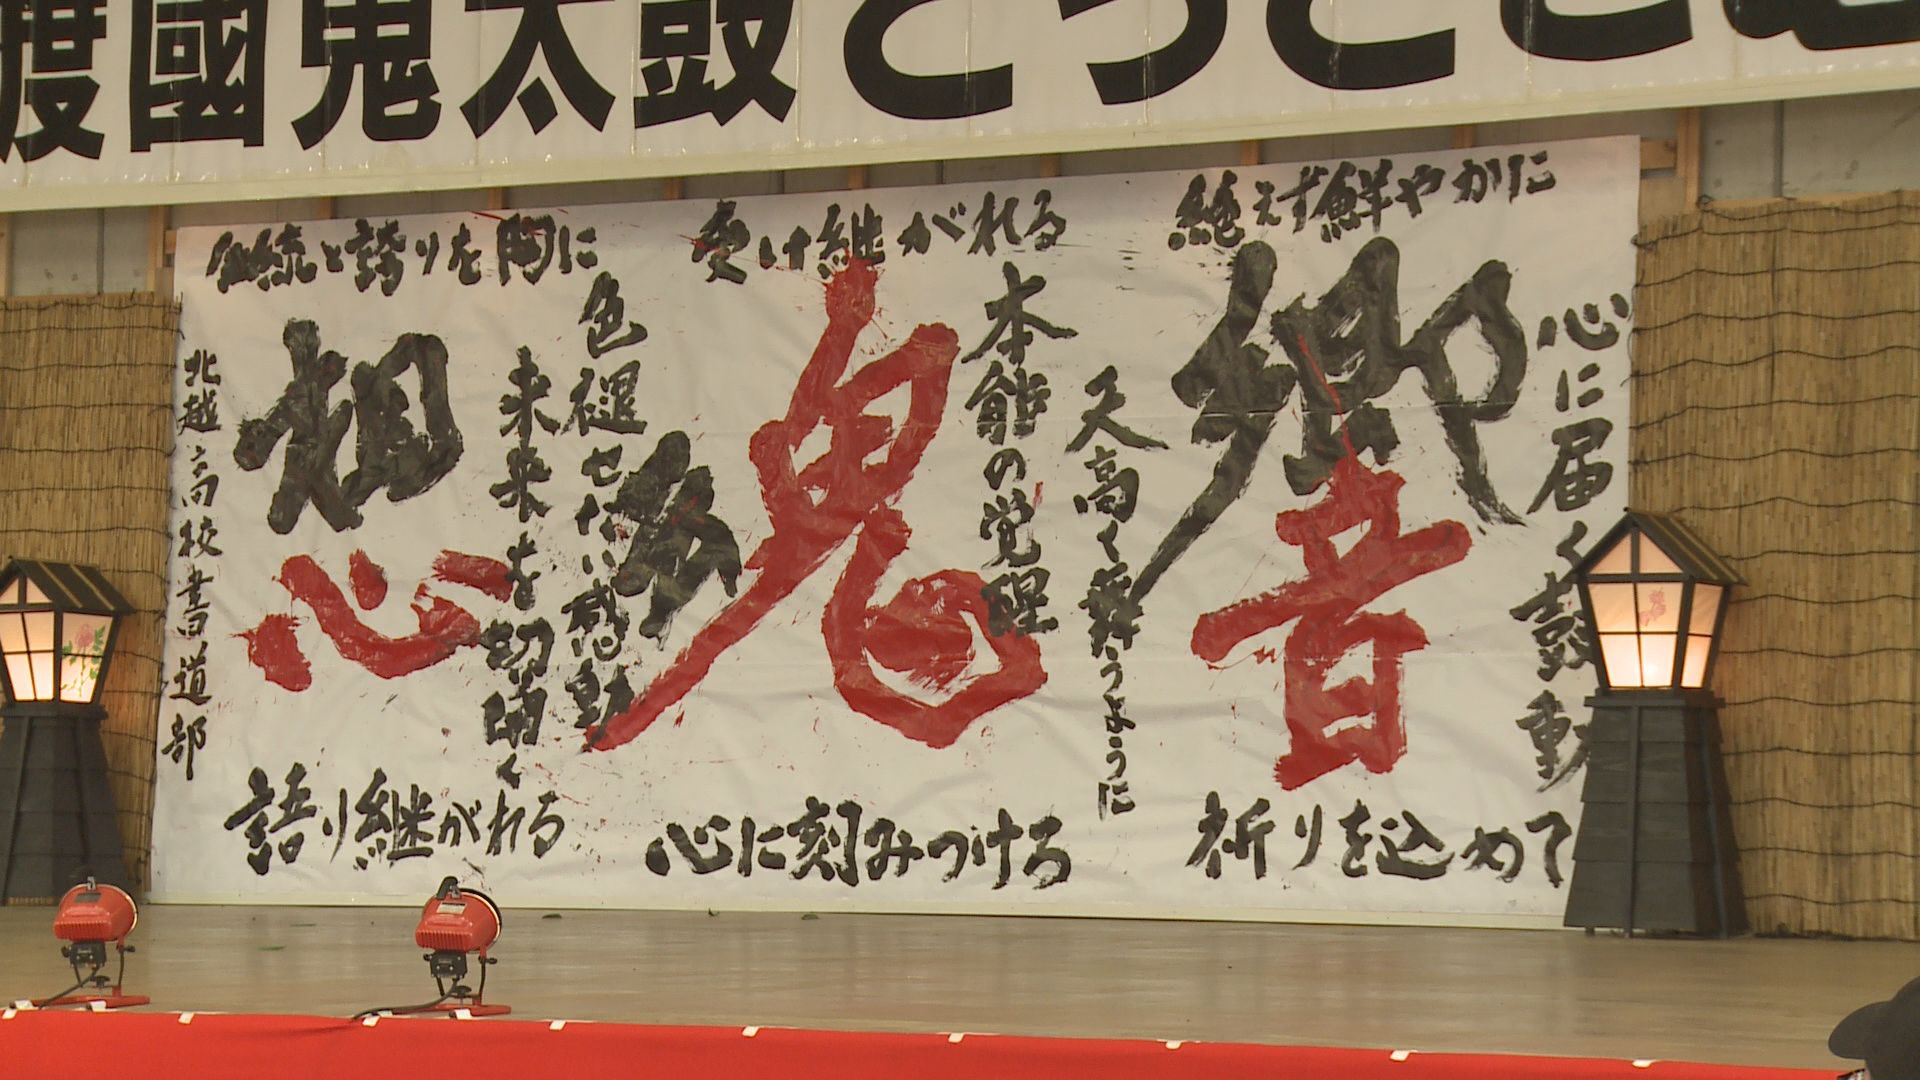 渡國鬼太鼓どっとこむ
絶えず鮮やかに
心に届く鼓動
響
祈りを込めて
天高く舞うように
本能の覚醒
受け継がれる
魂
心に刻みつける
色褪せない感動
未来を切り開く
伝統と誇りを胸に
想
語り継がれる
北越高校書道部